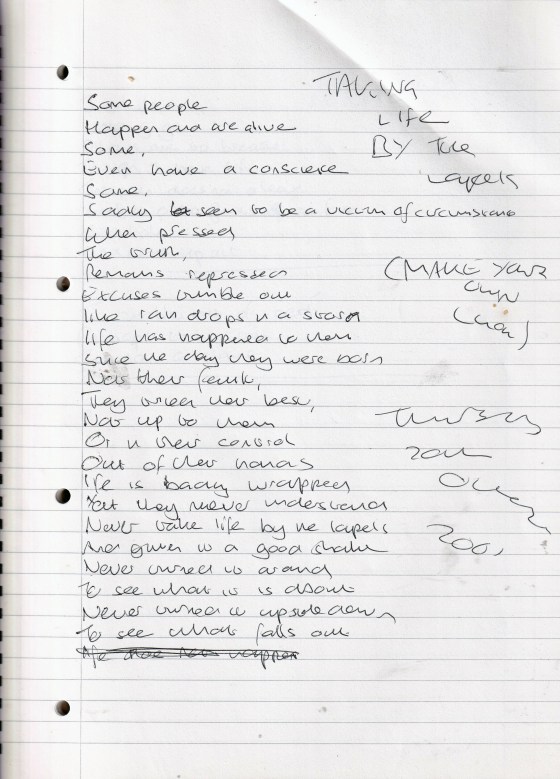 TAKING
LIFE
BY THE
Lapels
Some people
Happen and are alive
Some,
Even have a conscience
Some,
Sadly seem to be a victim of circumstance
When pressed
The truth,
Remains repressed
Excuses tumble out
like rain drops in a storm
life has happened to them
Since the day they were born
Not their fault,
They tried their best,
Not up to them
Or in their control
Out of their hands
life is badly wrapped
Yet they never understand
Never take life by the lapels
And given it a good shake
Never turned it around
To see what it is about
Never turned it upside down
To see what falls out
(MAKE YOUR
own
luck)
Thursday
20th